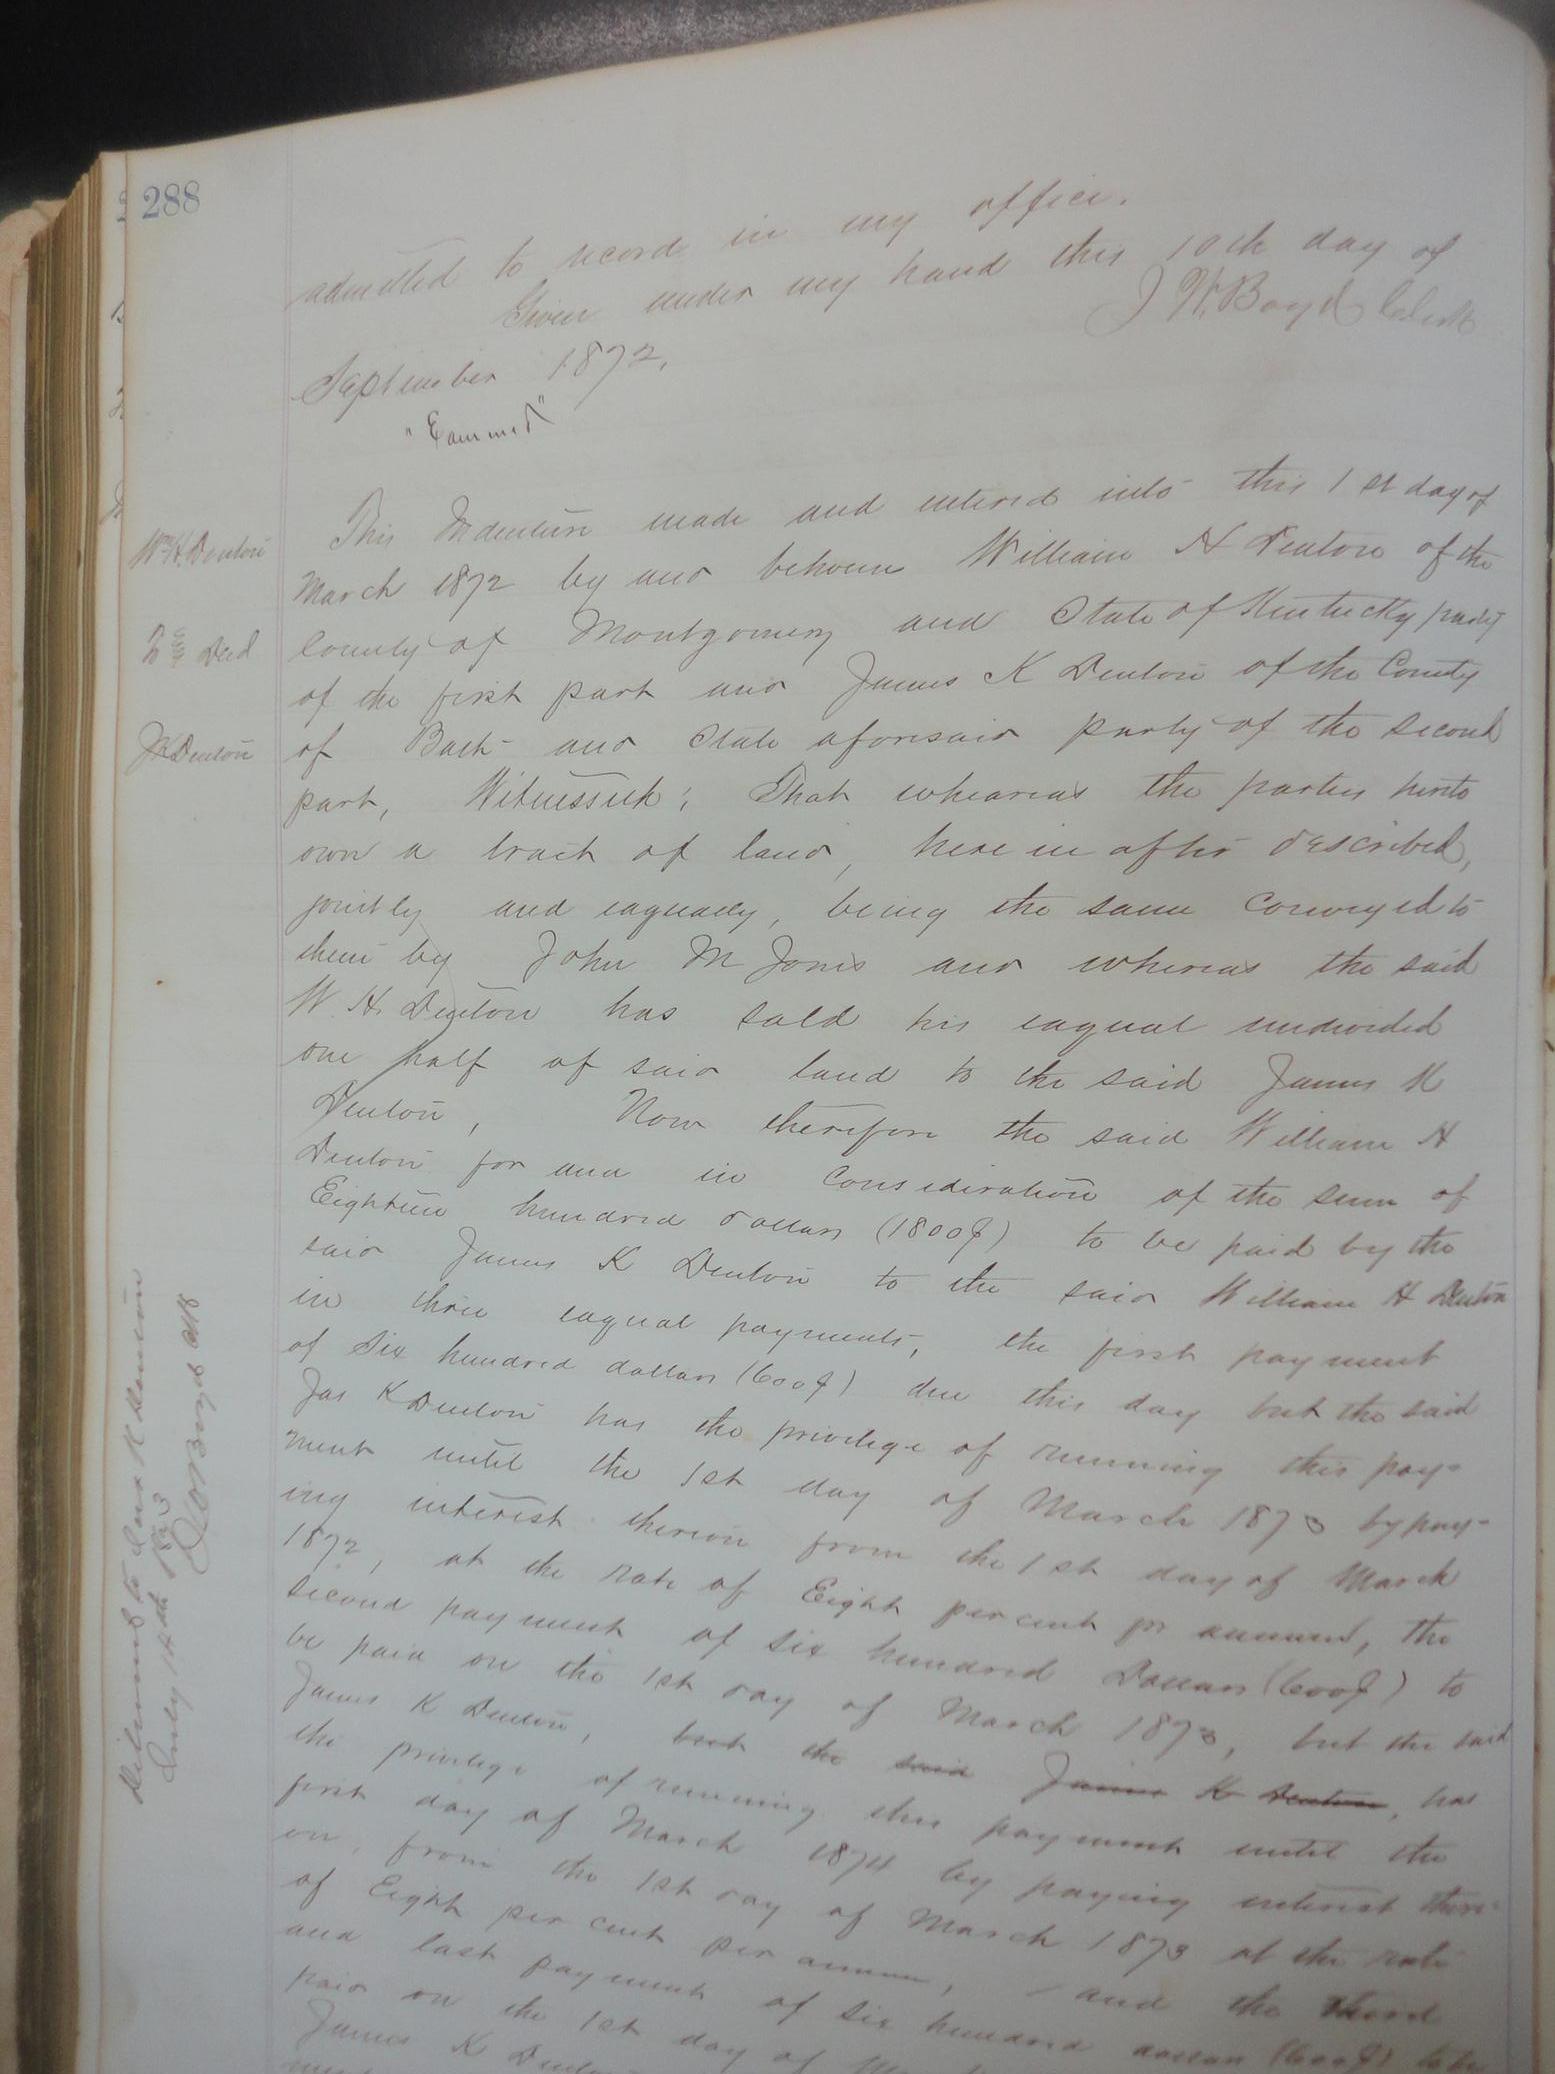 288
admitted to record in my office.
Given under my hand this 10th day of
September 1872,
J W Boyd Clerk
This Indenture made and entered into this 1st day of
March 1872 by and between William H Denton of the
County of Montgomery and State of Kentucky party
of the first part and James K Denton of the County
of Bath and State aforesaid party of the second
part, Witnesseth; That wheareas the parties hereto
own a tract of land, here in after described,
jointly and eaqually, being the same conveyed to
them by John M Jones and whereas the said
W. H. Denton has sold his eaqual undivided
one half of said land to the said James K
Denton, Now therefore the said William H
Denton for and in Consideration of the sum of
Eighteen hundred dollars (1800$) to be paid by the
said James K Denton to the said William H Denton
in three eaqual payments, the first payment
of Six hundred dollars (600$) due this day but the said
Jas K Denton has the privilege of running this pay-
ment until the 1st day of March 1873 by pay-
ing interest thereon from the 1st day of March
1872, at the rate of Eight per cent pr annum, the
second payment of six hundred Dollars (600$) to
be paid on the 1st day of March 1873, but the said
James K Denton, but the said James K Denton, has
the privilege of running this payment until the
first day of March 1874 by paying interest there-
on, from the 1st day of March 1873 at the rate
of Eight per cent per annum, and the third
and last payment of six hundred dollars (600$) to be
paid on the 1st day of
James K Denton
Wm H. Denton
2 Deed
JK Denton
Delivered to Jas K Denton
July 14th 1873
Boyd Clk